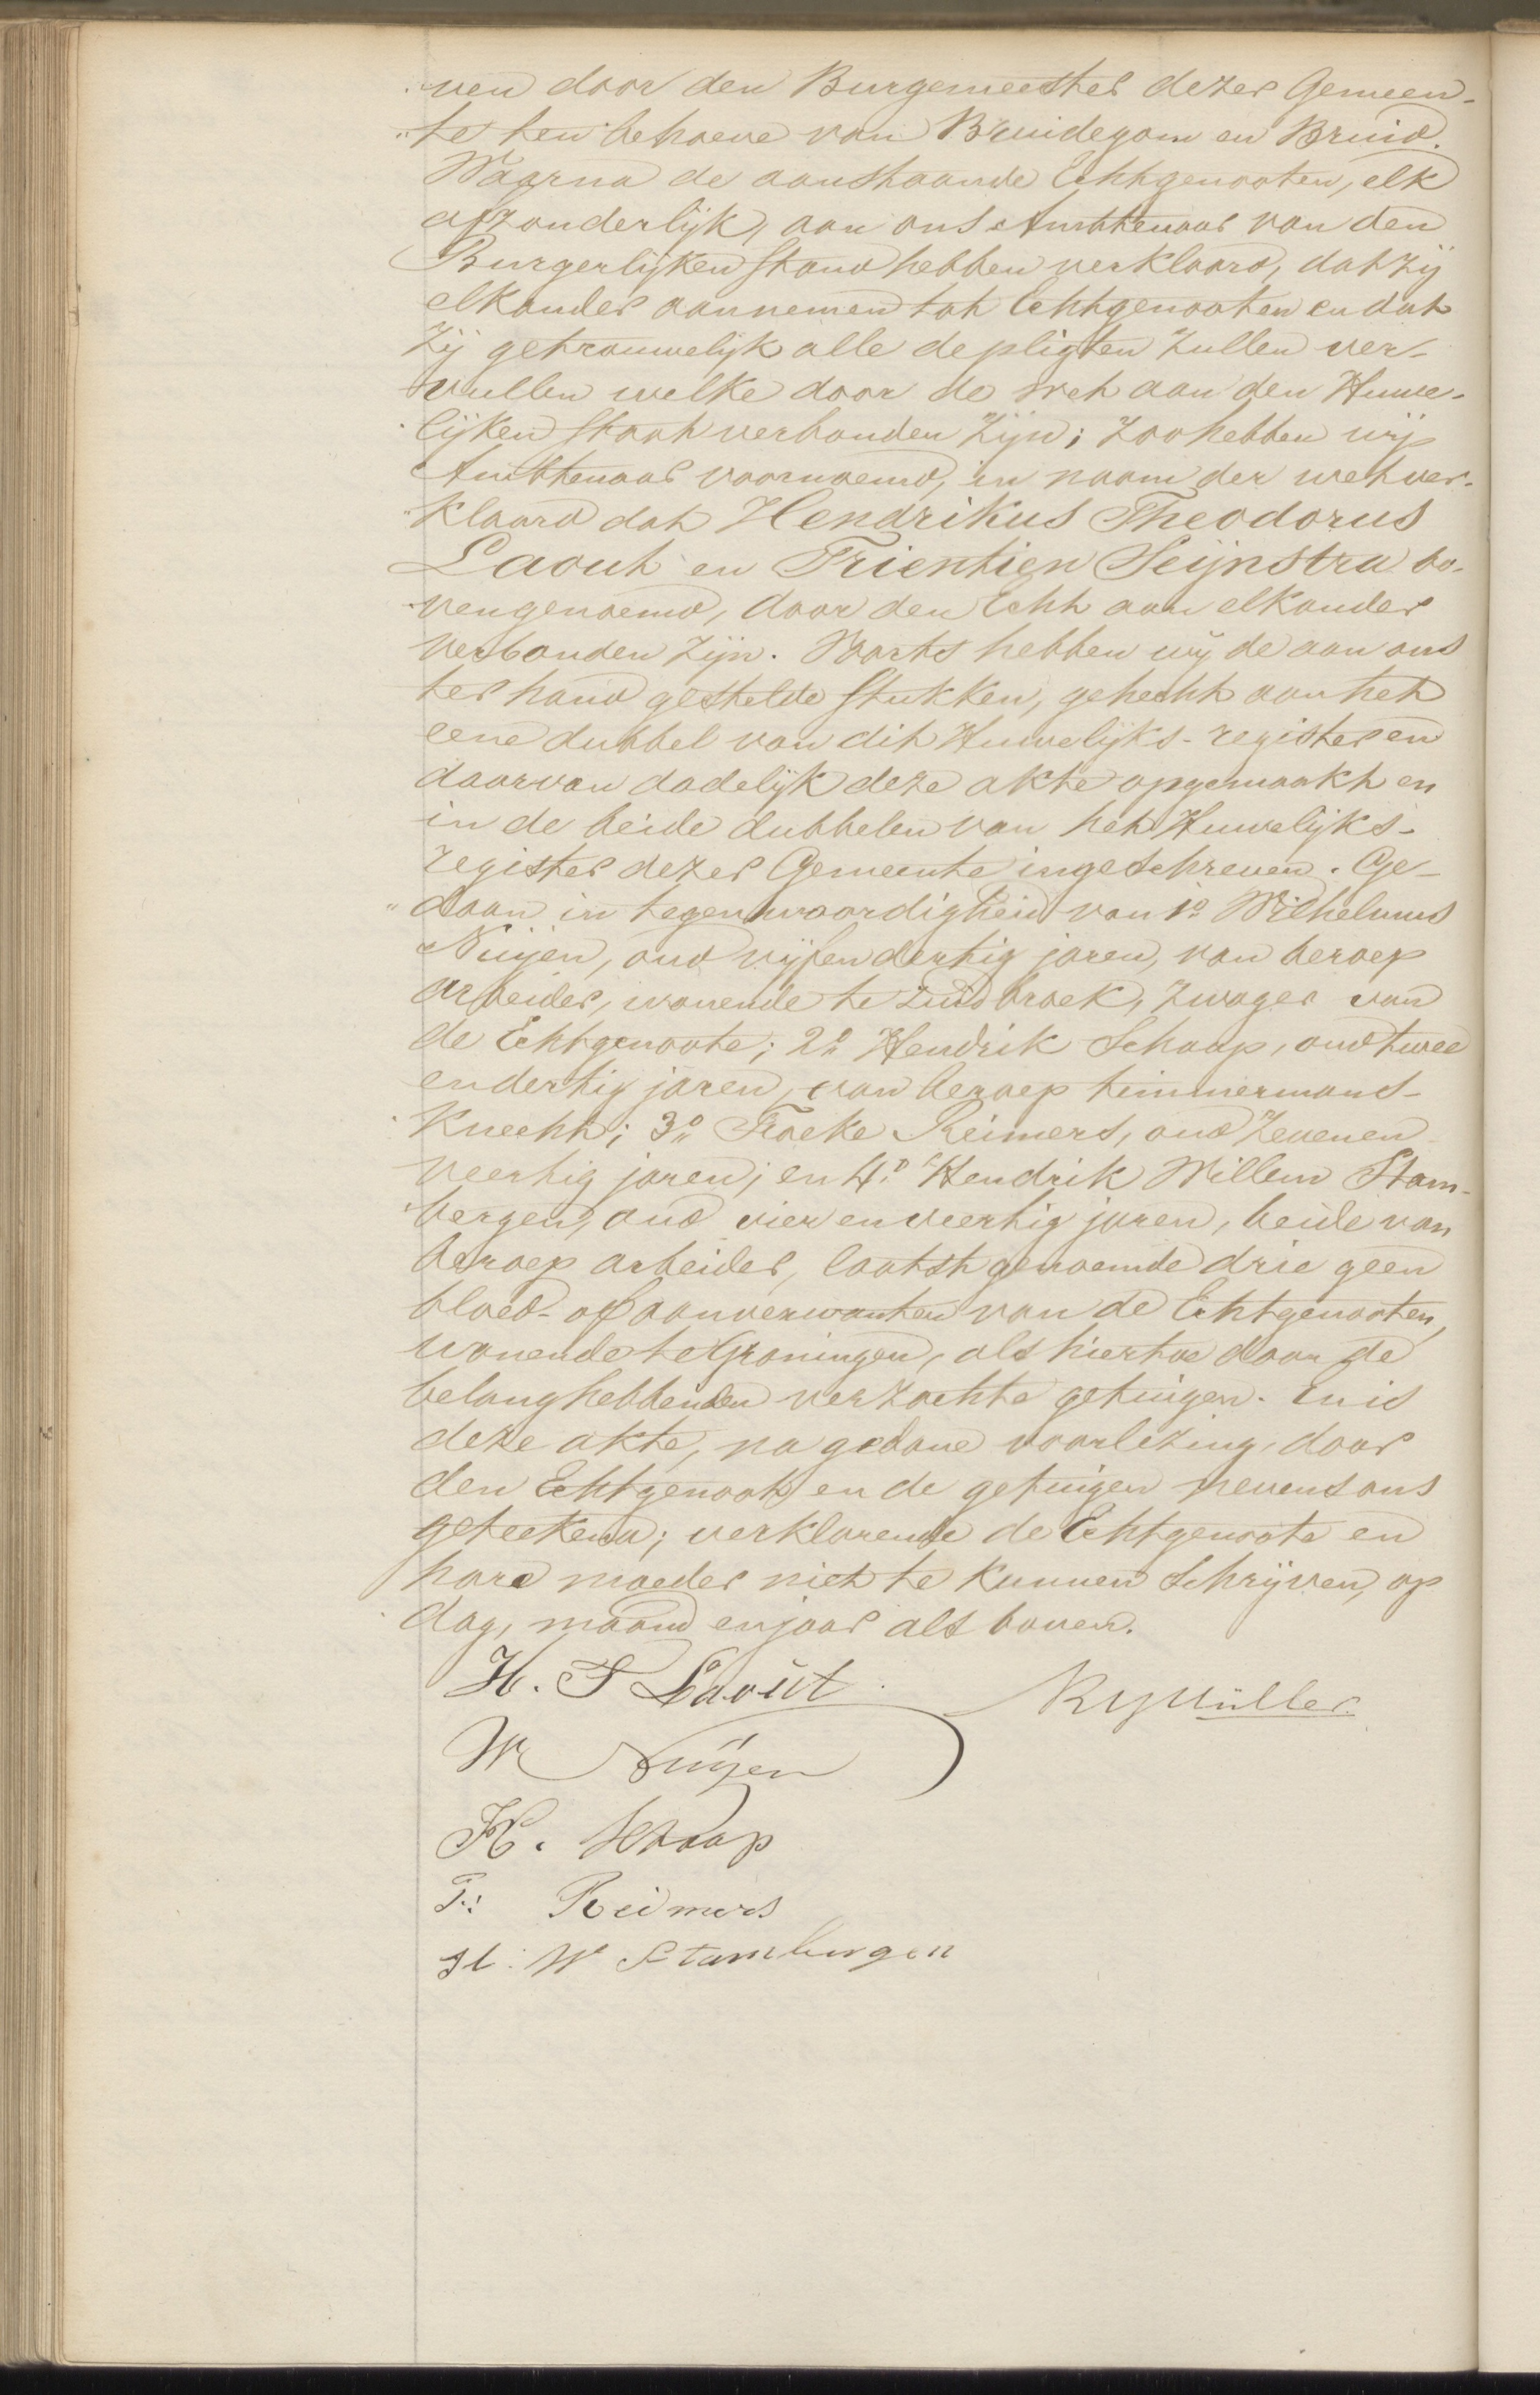 ven door den Burgemeester dezer Gemeen-
"te ten behoeve van Bruidegom en Bruid.
Waarna de aanstaande Echtgenooten, elk
afzonderlijk, aan ons Ambtenaar van den
Burgerlijken Stand hebben verklaard, dat zij
elkander aannemen tot Echtgenooten en dat
zij getrouwelijk alle de pligten zullen ver-
vullen welke door de wet aan den Huwe-
lijken Staat verbonden zijn; zoo hebben wij
Ambtenaar voornoemd, in naam der wet ver-
"klaard dat Hendrikus Theodorus
Laout en Trientien Seijnstra bo-
vengenoemd, door den Echt aan elkander
verbonden zijn. Voorts hebben wij de aan ons
ter hand gestelde Stukken, gehecht aan het
eene dubbel van dit Huwelijks-register en
daarvan dadelijk deze akte opgemaakt en
in de beide dubbelen van het Huwelijks-
register dezer Gemeente ingeschreven. Ge-
"daan in tegenwoordigheid van 1o Wilhelmus
Nuijen, oud vijfendertig jaren, van beroep
arbeider, wonende te Zuidbroek, zwager van
de Echtgenoote; 2o Hendrik Schaap, oud twee
endertig jaren, van beroep timmermans-
knecht; 3o Focke Reimers, oud zevenen
veertig jaren; en 4o Hendrik Willem Stam-
bergen, oud vier en veertig jaren, beide van
beroep arbeider, laatstgenoemde drie geen
bloed- of aanverwanten van de Echtgenooten,
wonende te Groningen, als hiertoe door de
belanghebbenden verzochte getuigen. En is
deze akte, na gedane voorlezing, door
den Echtgenoot en de getuigen nevens ons
geteekend; verklarende de Echtgenoote en
hare moeder niet te kunnen schrijven, op
dag, maand en jaar als boven.
H. T Laout
Müller.
W Nuijen
H. Schaap
F: Reimers
H: W Stambergen